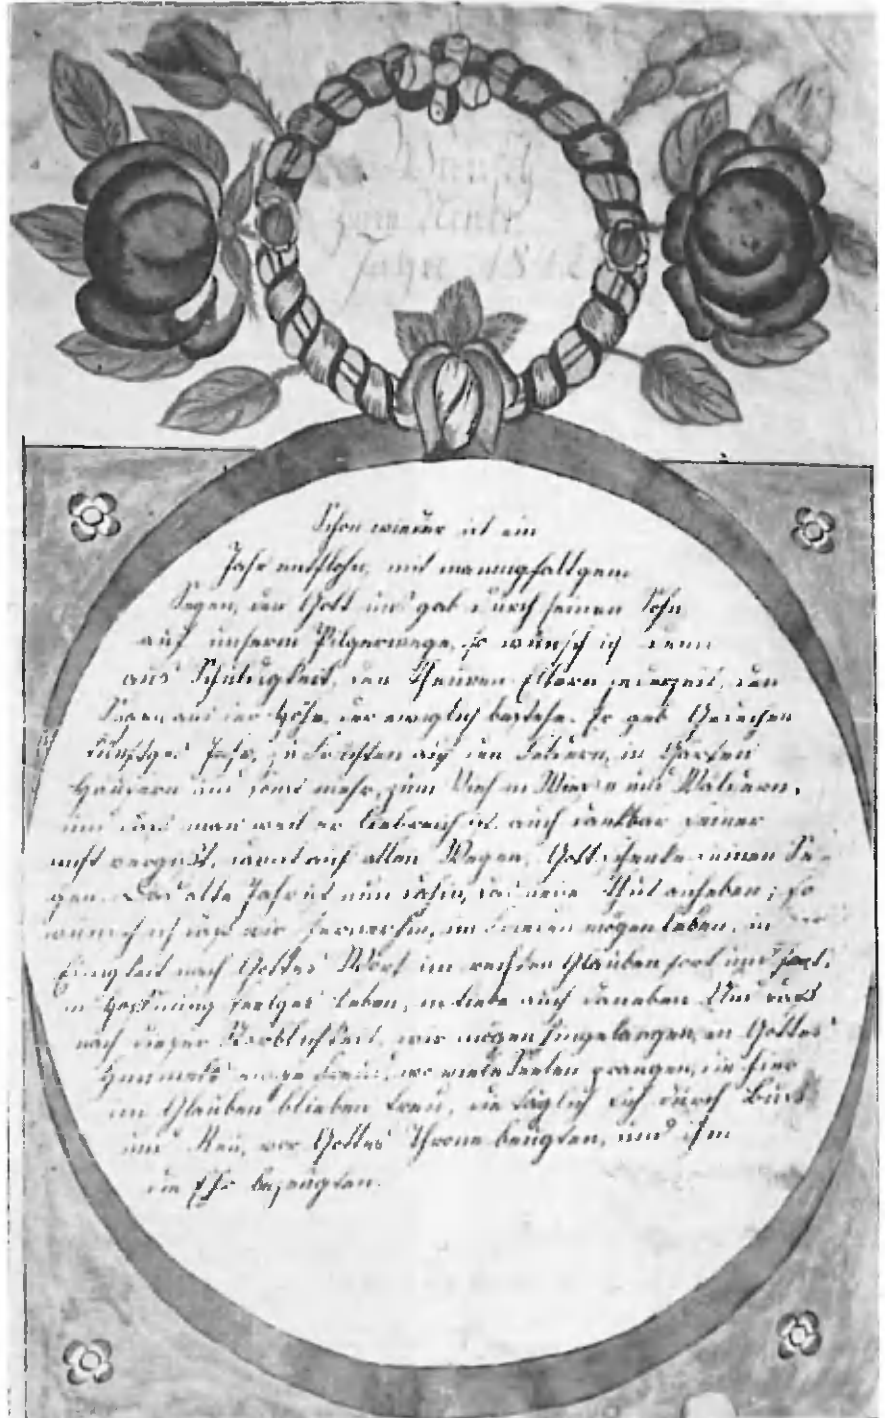 Wunsch
zum Neuen
Jahr 1842
Schon wieder ist ein
Jahr entflohn, mit mannigfaltgem
Segen, den Gott uns gab durch seinen Sohn
auf unserm Pilgerwege, so wünsch ich denn
aus Schuldigkeit, den Theuren Eltern jederzeit, den
Segen aus der Höhe, der ewiglich bestehe. Er geb Gedeihen
künftges Jahr, zu Früchten auf den Feldern, in Gärten
Häusern und sonst mehr, zum Vieh in Wies und Wäldern,
und dass man weil er liebreich ist, auch dankbar seiner
nicht vergisst, damit auf allen Wegen, Gott schenke seinen Se-
gen. Das alte Jahr ist nun dahin, das neue thut anheben; so
wünsch ich dass wir fernerhin, im Frieden mögen leben, in der
Einigkeit nach Gottes Wort im rechten Glauben fort und fort,
in Hoffnung seelges Leben, in Liebe auch daneben Und dass
nach dieser Sterblichkeit, wir mögen hingelangen, in Gottes
Himmels ewge Freud, wo viele Seelen prangen, die hier
im Glauben blieben treu, die täglich sich durch Buss
und Reu, vor Gottes Throne beugten, und ihm
die Ehr bezeugten.